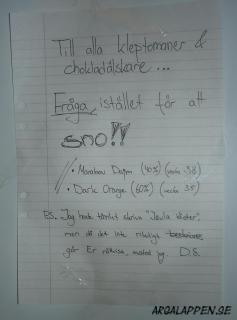 Till alla kleptomaner &
chokladälskare...
Fråga istället för att
sno!!
• Marabou Dajm (40%) (vecka 38)
• Dark Orange (60%) (vecka 35)
P.S. Jag hade tänkt skriva "Jävla idioter",
men då det inte riktigt
gör Er rättvisa, avstod jag. D.S.
ARGALAPPEN.SE